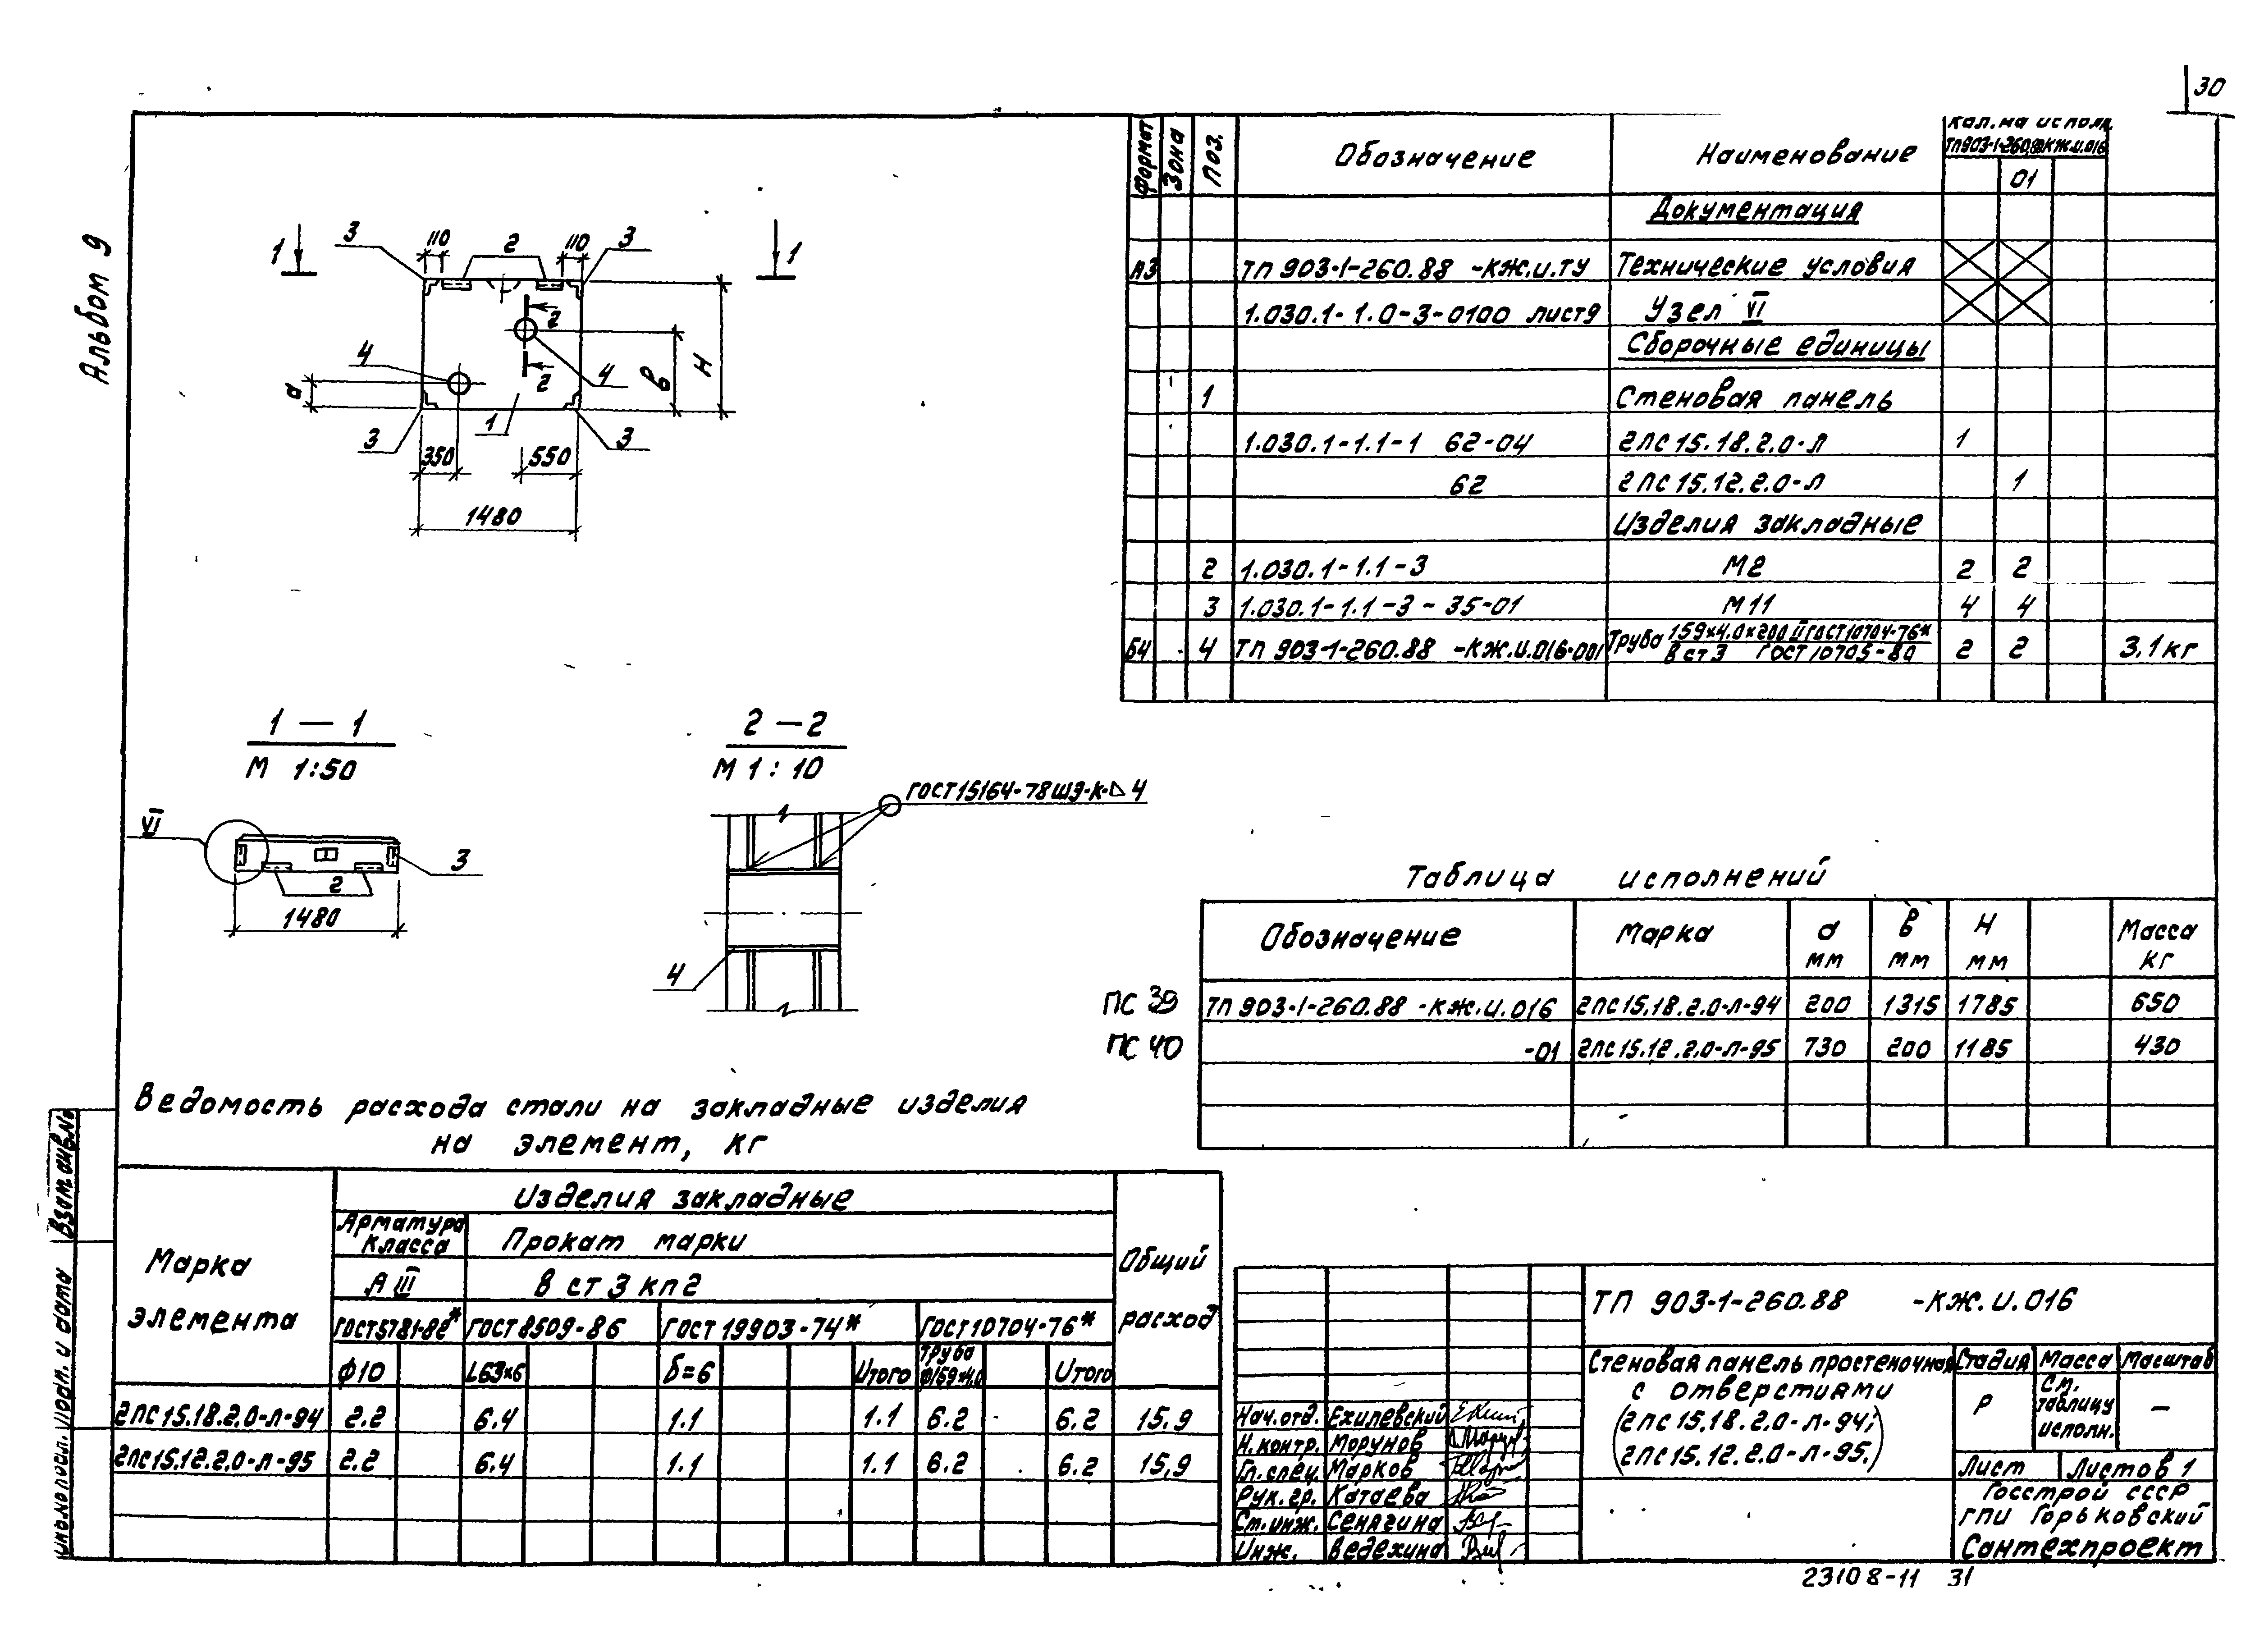 30
Альбом 9
1 1
3 110 2 110 3
2
4 4 2
а в Н
3 1 3
350 550
1480
1 — 1
М 1:50
VI
3
2
1480
2 — 2
М 1:10
ГОСТ 15164-78 ШЭ-К-△ 4
4
Формат Зона Поз. Обозначение Наименование Кол. на исполн. ТП 903-1-260.88 КЖ.И.016
01
Документация
А3 ТП 903-1-260.88 -КЖ.И.ТУ Технические условия
1.030.1-1.0-3-0100 лист 9 Узел VI
Сборочные единицы
1 Стеновая панель
1.030.1-1.1-1 62-04 2ПС 15.18.2.0-Л 1
62 2ПС 15.12.2.0-Л 1
Изделия закладные
2 1.030.1-1.1-3 М2 2 2
3 1.030.1-1.1-3-35-01 М11 4 4
Б4 4 ТП 903-1-260.88 -КЖ.И.016-001 Труба 159×4.0×200 II ГОСТ 10704-76* 2 2 3.1 кг
В ст 3 ГОСТ 10705-80
Таблица исполнений
Обозначение Марка а мм в мм Н мм Масса кг
ПС 39 ТП 903-1-260.88 -КЖ.И.016 2ПС 15.18.2.0-Л-94 200 1315 1785 650
ПС 40 -01 2ПС 15.12.2.0-Л-95 730 200 1185 430
Ведомость расхода стали на закладные изделия
на элемент, кг
Марка элемента Изделия закладные Общий расход
Арматура класса Прокат марки
А III В ст 3 кп 2
ГОСТ 5781-82* ГОСТ 8509-86 ГОСТ 19903-74* ГОСТ 10704-76*
Ф10 L63×6 δ=6 Итого Труба Ф159×4.0 Итого
2ПС 15.18.2.0-Л-94 2.2 6.4 1.1 1.1 6.2 6.2 15.9
2ПС 15.12.2.0-Л-95 2.2 6.4 1.1 1.1 6.2 6.2 15,9
Взам. инв. №
Подп. и дата
Инв. № подл.
ТП 903-1-260.88 -КЖ.И.016
Стеновая панель простеночная
с отверстиями
(2ПС 15.18.2.0-Л-94;
2ПС 15.12.2.0-Л-95.)
Стадия Масса Масштаб
Р см. таблицу исполн. —
Лист Листов 1
Госстрой СССР
ГПИ Горьковский
Сантехпроект
Нач. отд. Ехилевский
Н. контр. Морунов
Гл. спец. Марков
Рук. гр. Катаева
Ст. инж. Сенягина
Инж. Ведехина
23108-11 31